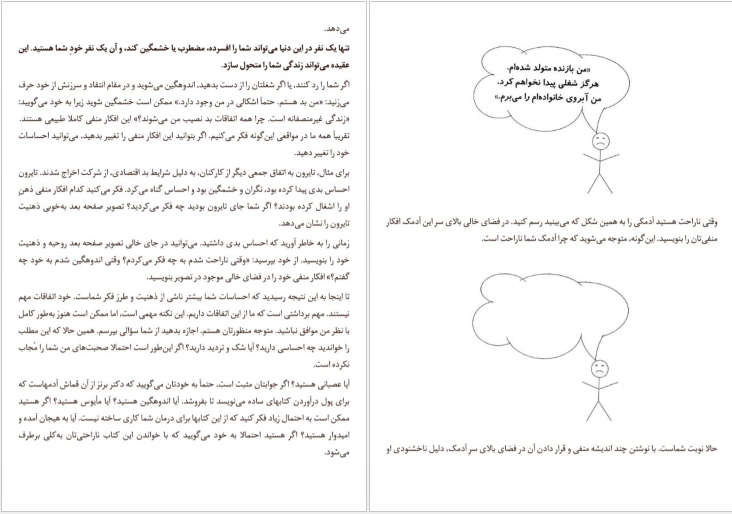 «من بازنده متولد شده‌ام.
هرگز شغلی پیدا نخواهم کرد.
من آبروی خانواده‌ام را می‌برم.»
وقتی ناراحت هستید آدمکی را به همین شکل که می‌بینید رسم کنید. در فضای خالی بالای سر این آدمک افکار
منفی‌تان را بنویسید. این‌گونه، متوجه می‌شوید که چرا آدمک شما ناراحت است.
حالا نوبت شماست. با نوشتن چند اندیشه منفی و قرار دادن آن در فضای بالای سرِ آدمک، دلیل ناخشنودی او
می‌دهد.
تنها یک نفر در این دنیا می‌تواند شما را افسرده، مضطرب یا خشمگین کند، و آن یک نفر خودِ شما هستید. این
عقیده می‌تواند زندگی شما را متحول سازد.
اگر شما را رد کنند، یا اگر شغلتان را از دست بدهید، اندوهگین می‌شوید و در مقام انتقاد و سرزنش از خود حرف
می‌زنید: «من بد هستم. حتماً اشکالی در من وجود دارد.» ممکن است خشمگین شوید زیرا به خود می‌گویید:
«زندگی غیرمنصفانه است. چرا همه اتفاقات بد نصیب من می‌شوند؟» این افکار منفی کاملا طبیعی هستند.
تقریباً همه ما در مواقعی این‌گونه فکر می‌کنیم. اگر بتوانید این افکار منفی را تغییر بدهید، می‌توانید احساسات
خود را تغییر دهید.
برای مثال، تایرون به اتفاق جمعی دیگر از کارکنان، به دلیل شرایط بد اقتصادی، از شرکت اخراج شدند. تایرون
احساس بدی پیدا کرده بود، نگران و خشمگین بود و احساس گناه می‌کرد. فکر می‌کنید کدام افکار منفی ذهنِ
او را اشغال کرده بودند؟ اگر شما جای تایرون بودید چه فکر می‌کردید؟ تصویر صفحه بعد به‌خوبی ذهنیت
تایرون را نشان می‌دهد.
زمانی را به خاطر آورید که احساس بدی داشتید. می‌توانید در جای خالی تصویر صفحه بعد روحیه و ذهنیت
خود را بنویسید. از خود بپرسید: «وقتی ناراحت شدم به چه فکر می‌کردم؟ وقتی اندوهگین شدم به خود چه
گفتم؟» افکار منفی خود را در فضای خالی موجود در تصویر بنویسید.
تا اینجا به این نتیجه رسیدید که احساسات شما بیشتر ناشی از ذهنیت و طرز فکر شماست. خود اتفاقات مهم
نیستند. مهم برداشتی است که ما از این اتفاقات داریم. این نکته مهمی است، اما ممکن است هنوز به‌طور کامل
با نظر من موافق نباشید. متوجه منظورتان هستم. اجازه بدهید از شما سؤالی بپرسم. همین حالا که این مطلب
را خواندید چه احساسی دارید؟ آیا شک و تردید دارید؟ اگر این‌طور است احتمالا صحبت‌های من شما را مُجاب
نکرده است.
آیا عصبانی هستید؟ اگر جوابتان مثبت است، حتماً به خودتان می‌گویید که دکتر برنز از آن قماش آدمهاست که
برای پول درآوردن کتابهای ساده می‌نویسد تا بفروشد. آیا اندوهگین هستید؟ آیا مأیوس هستید؟ اگر هستید
ممکن است به احتمال زیاد فکر کنید که از این کتابها برای درمان شما کاری ساخته نیست. آیا به هیجان آمده و
امیدوار هستید؟ اگر هستید احتمالا به خود می‌گویید که با خواندن این کتاب ناراحتی‌تان به‌کلی برطرف
می‌شود.